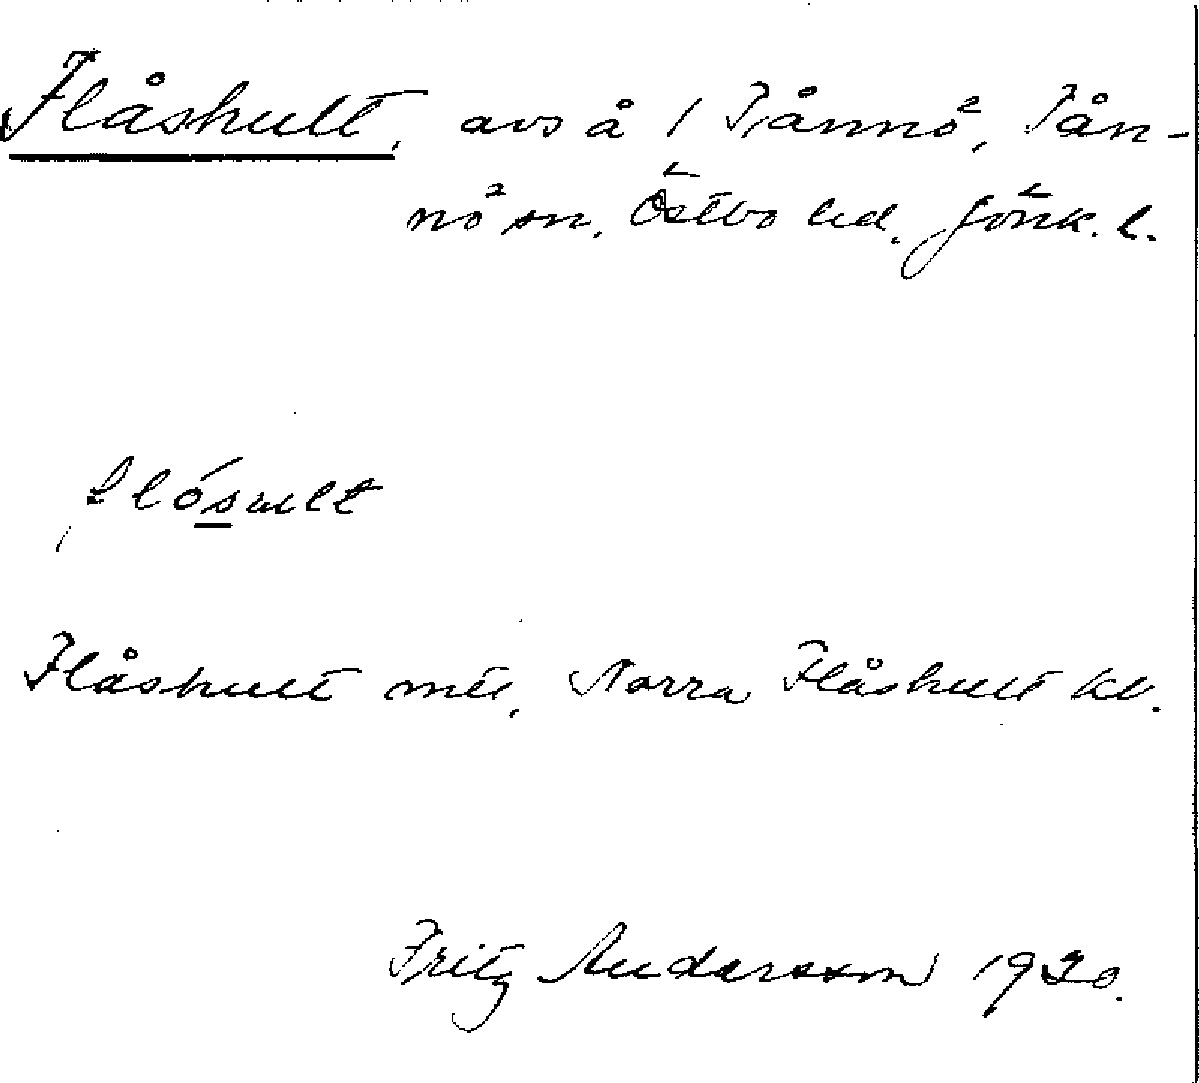 Flåshult, avs å 1 Tånnö, Tån-
nö sn, Östbo hd. Jönk. l.
flósult
Flåshult mtl, Norra Flåshult kl.
Fritz Andersson 1920.